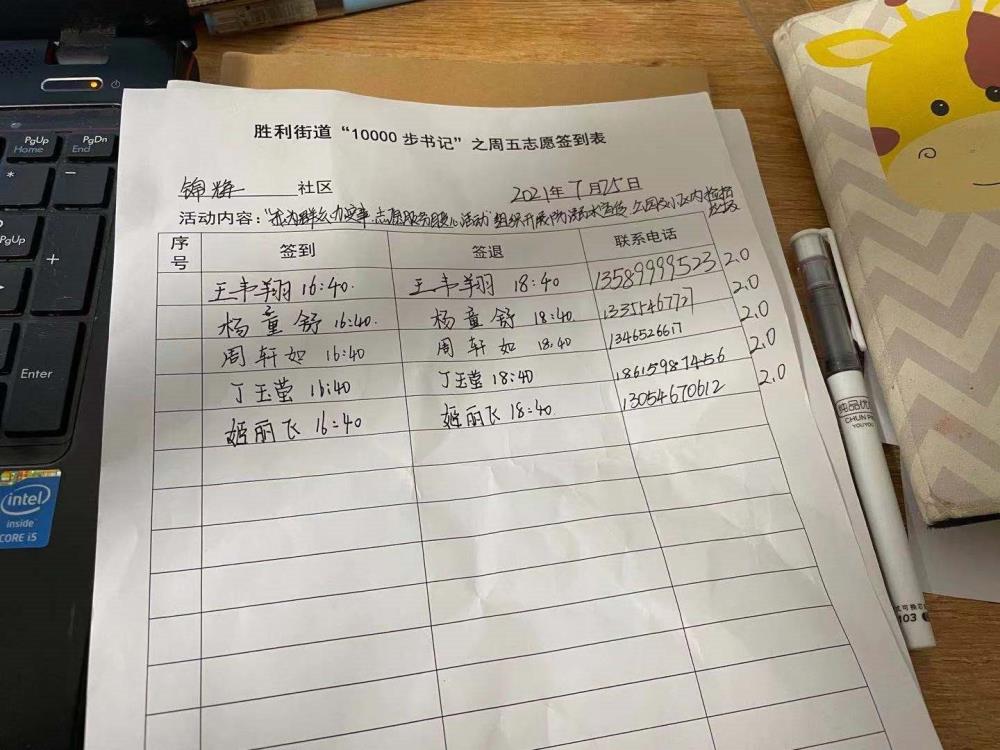 胜利街道“10000步书记”之周五志愿签到表
锦辉 社区 2021年7月25日
活动内容：“我为群众办实事”志愿服务暖心活动 组织开展 清积水 公园及小区内捡拾
垃圾
序号 签到 签退 联系电话
王韦翔 16:40. 王韦翔 18:40 13589999523 2.0
杨童舒 16:40. 杨童舒 18:40. 13354677 2.0
周轩如 16:40 周轩如 18:40 1346526617 2.0
丁玉莹 16:40 丁玉莹 18:40 18615987456 2.0
姬丽飞 16:40 姬丽飞 18:40 13054670612 2.0
PgUp
Home
PgDn
End
*
-
PgUp
+
Enter
intel
inside
CORE i5
纯品优
CHUN P
YOUYOU
可换
103